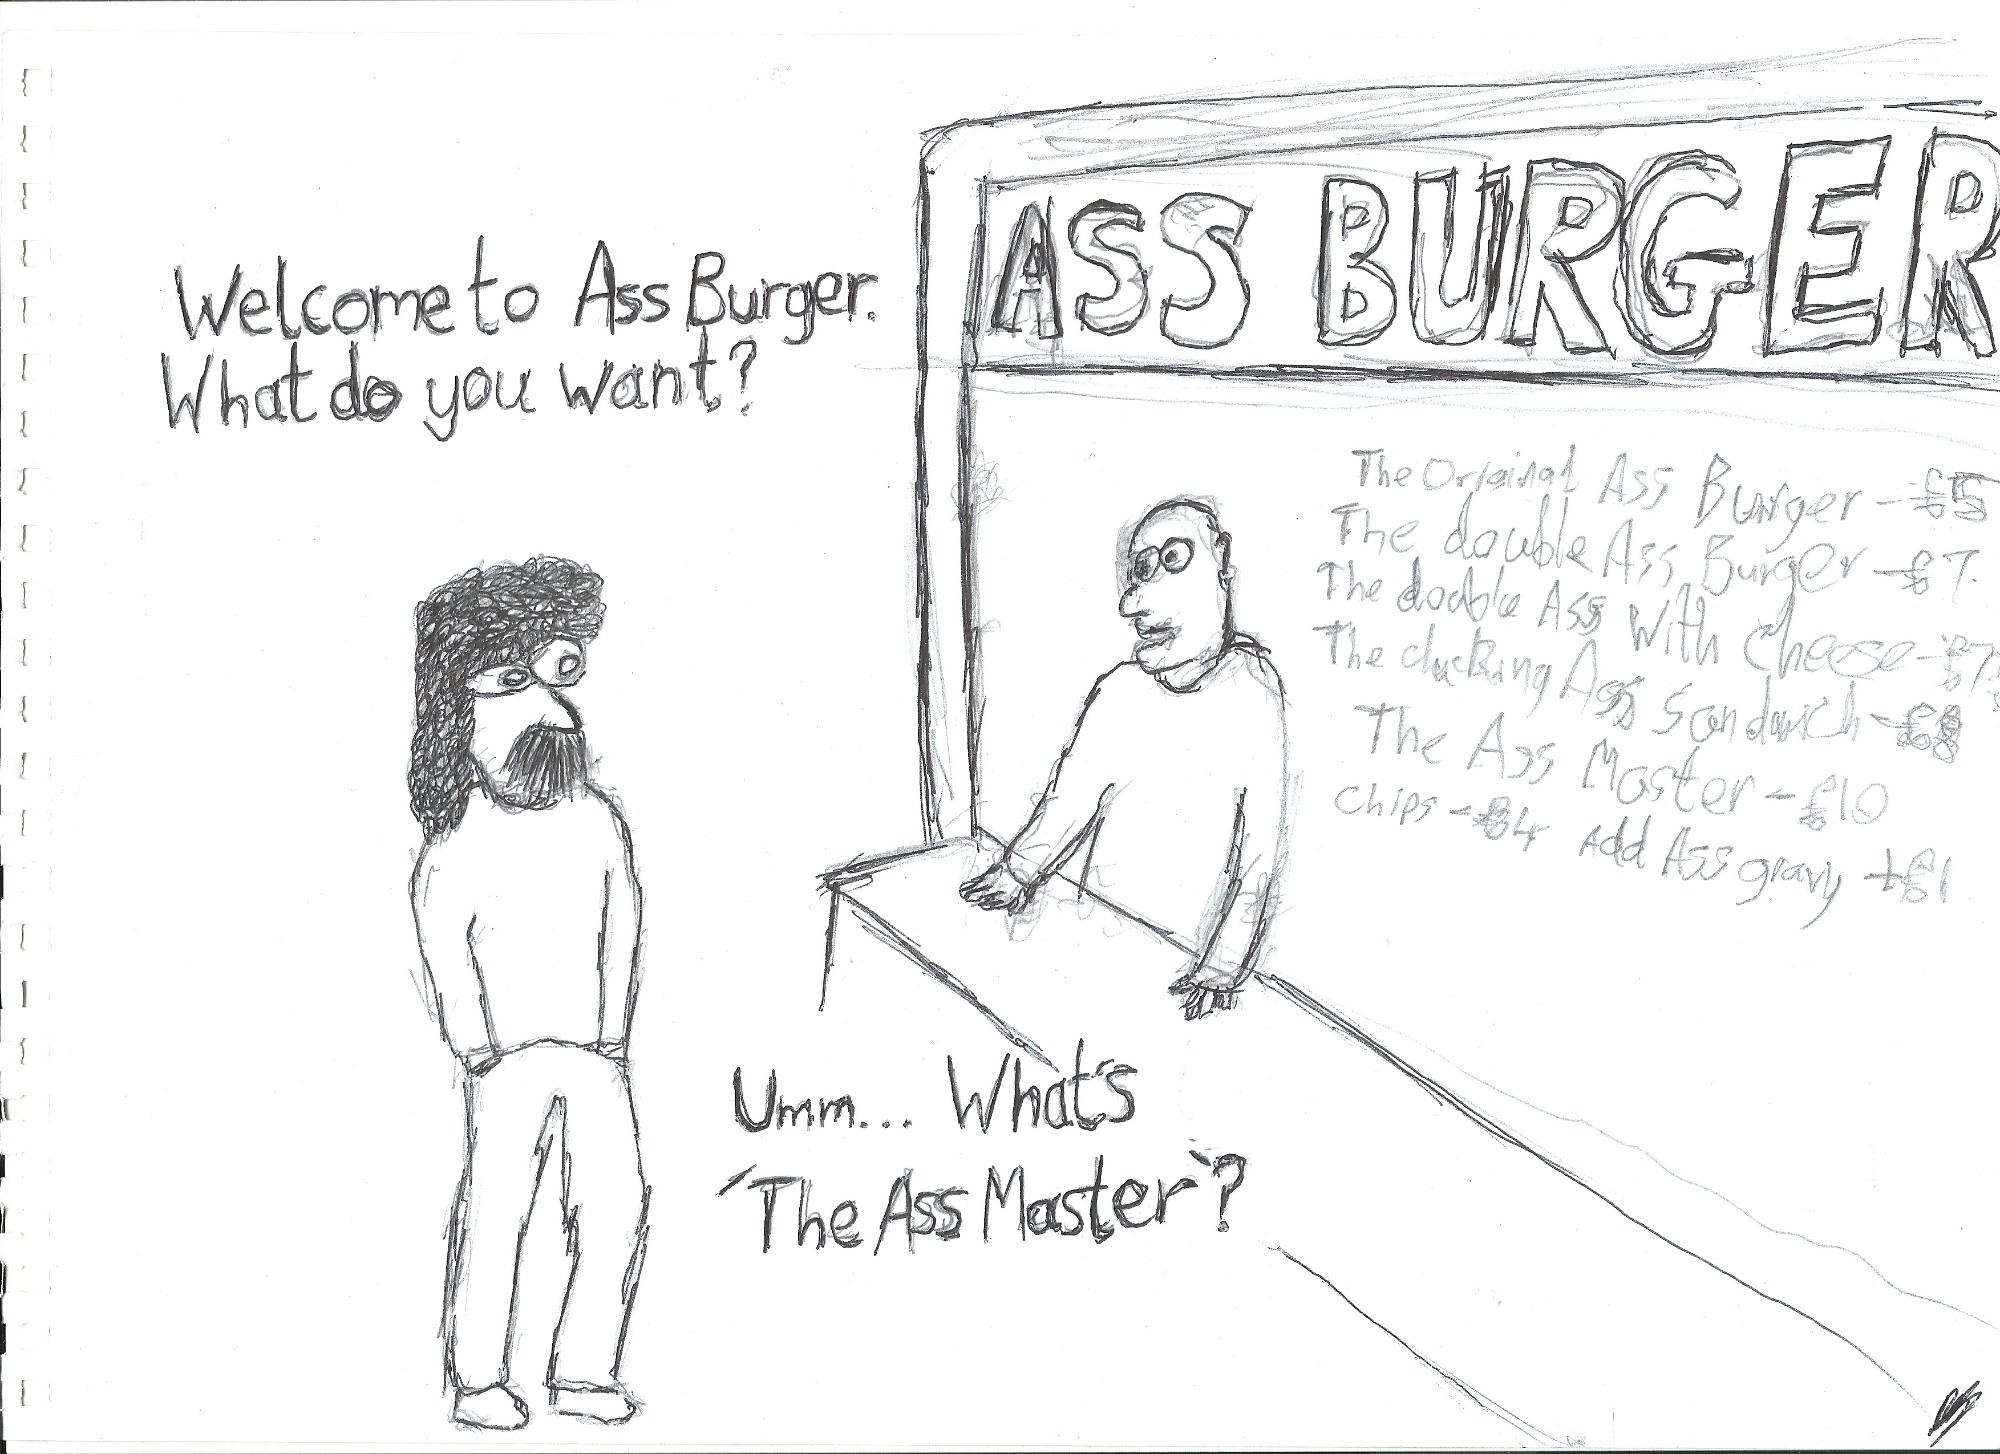 ASS BURGER
Welcome to Ass Burger.
What do you want?
The Original Ass Burger - £5
The double Ass Burger - £7.
The double Ass With Cheese - £7
The clucking Ass Sandwich - £8
The Ass Master - £10
Chips - £4 Add Ass gravy +£1
Umm... What's
'The Ass Master'?